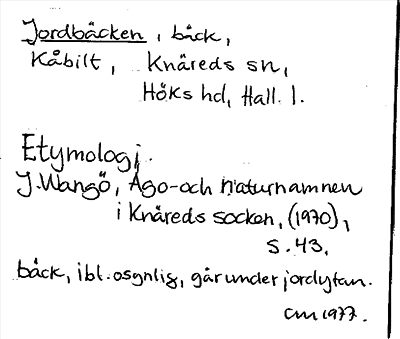 Jordbäcken, bäck,
Kåbilt, Knäreds sn,
Höks hd, Hall. l.
Etymologi.
J. Wangö, Ägo- och naturnamnen
i Knäreds socken, (1970),
s. 43.
bäck, ibl. osynlig, går under jordytan.
CM 1977.